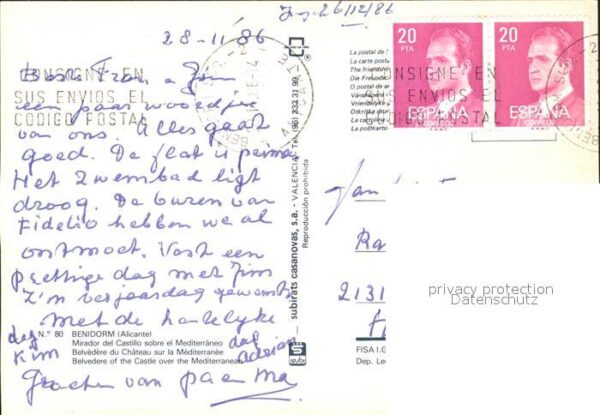 26/12/86
28-11-86
Beste Fran & Jim
een paar woordjes
van ons. Alles gaat
goed. De flat is prima
Het Zwembad ligt
droog. De buren van
Fidelio hebben we al
ontmoet. Vast een
prettige dag met Jims
z'n verjaardag gewenst
Met de hartelijke
dag Kim dag
Groeten van pa en Ma
CONSIGNE EN
SUS ENVIOS EL
CODIGO POSTAL
N.° 80 BENIDORM (Alicante)
Mirador del Castillo sobre el Mediterráneo
Belvédère du Château sur la Méditerranée
Belvedere of the Castle over the Mediterranean
subirats casanovas, s.a. - VALENCIA - Tel. (96) 333 31 99
Reproducción prohibida
La postal de
La carte posta
The friendshi
Die Freudock
O postal de a
Vänskap
Vriendelijke
La cartolina
La postkarto
20
PTA
ESPAÑA
CORREOS
20
PTA
ESPAÑA
CORREOS
CONSIGNE EN
SUS ENVIOS EL
CODIGO POSTAL
Fam
Ra
2131
privacy protection
Datenschutz
FISA I.G
Dep. Le